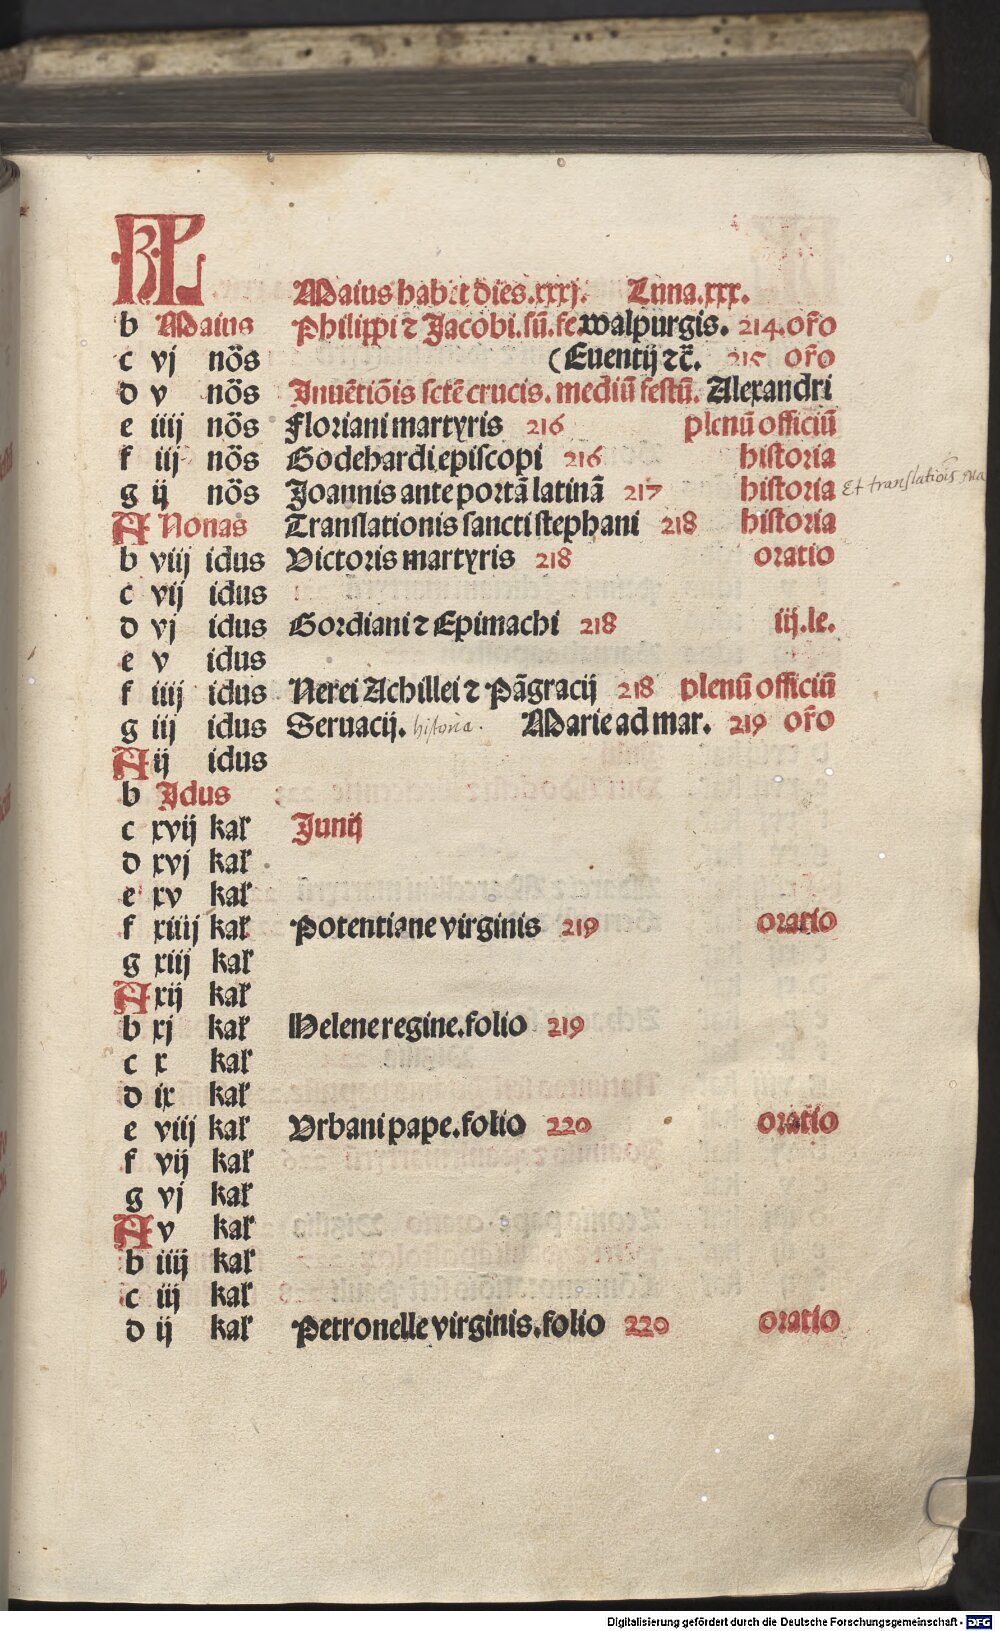 KL
Maius habet dies.xxxj. Luna.xxx.
b Maius Philippi ⁊ Jacobi.sū.fe.walpurgis. 214.or̄o
c vj nōs (Euentij ⁊c̄. 215 or̄o
d v nōs Inuētiōis sctē crucis. mediū festū. Alexandri
e iiij nōs Floriani martyris 216 plenū officiū
f iij nōs Godehardi episcopi 216 historia
g ij nōs Joannis ante portā latinā 217 historia Et translatiōis
A Nonas Translationis sancti stephani 218 historia
b viij idus Victoris martyris 218 oratio
c vij idus
d vj idus Gordiani ⁊ Epimachi 218 iij.le.
e v idus
f iiij idus Nerei Achillei ⁊ Pāgracij 218 plenū officiū
g iij idus Seruacij. historia. Marie ad mar. 219 or̄o
A ij idus
b Idus
c xvij kal' Junij
d xvj kal'
e xv kal'
f xiiij kal' Potentiane virginis 219 oratio
g xiij kal'
A xij kal'
b xj kal' Helene regine.folio 219
c x kal'
d ix kal'
e viij kal' Vrbani pape.folio 220 oratio
f vij kal'
g vj kal'
A v kal'
b iiij kal'
c iij kal'
d ij kal' Petronelle virginis.folio 220 oratio
Digitalisierung gefördert durch die Deutsche Forschungsgemeinschaft - DFG